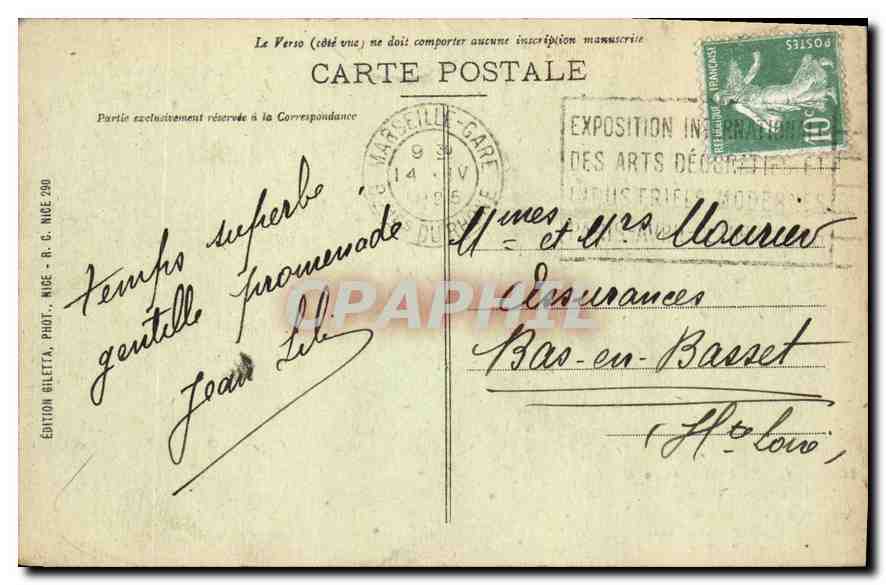 Le Verso (côté vue) ne doit comporter aucune inscription manuscrite
CARTE POSTALE
Partie exclusivement réservée à la Correspondance
MARSEILLE-GARE
9
14 IV
BCHES DU RHONE
EXPOSITION INTERNATIONALE
DES ARTS DÉCORATIFS ET
INDUSTRIELS MODERNES
POSTES
REPUBLIQUE FRANÇAISE
10c
temps superbe
gentille promenade
Jean
Mmes et Mrs Mourier
Assurances
Bas-en-Basset
(Hte Loire)
ÉDITION GILETTA, PHOT., NICE - R. C. NICE 290
CPAPHIL